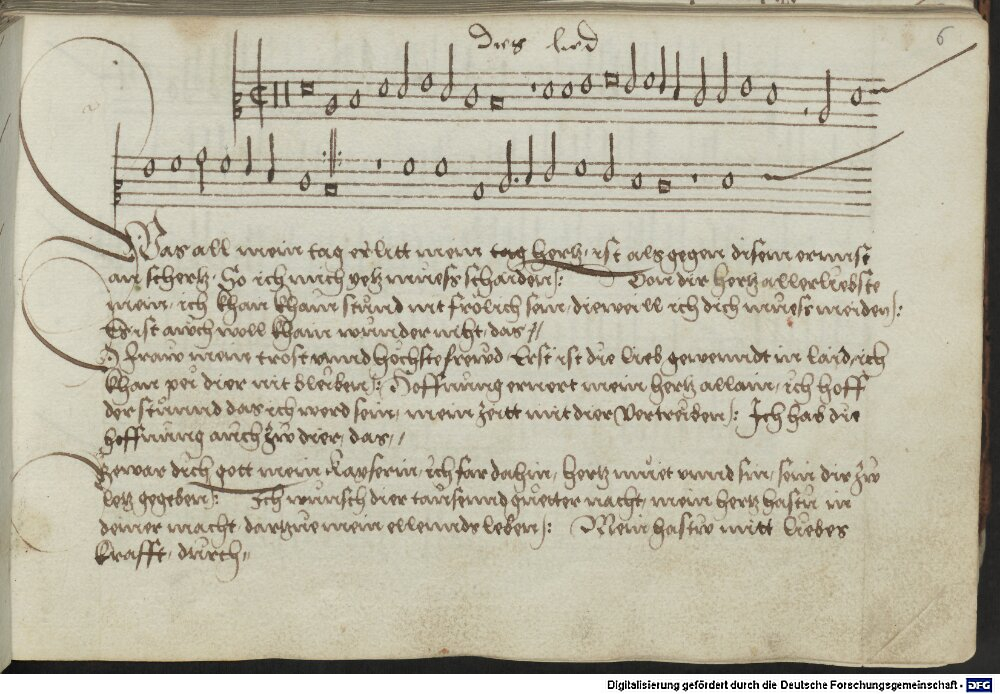 dies lied
6
Was all mein tag erlitt mein tag hertz ist als gegen disem ernnst
ain schertz, So ich mich yetz muess schaiden /: Von dir hertz allerliebste
mein, ich khan khain stund nit frölich sein, dieweill ich dich mueß meiden /:
Es ist auch woll khain wunder nicht, das //
O Fraw mein trost vnnd höchste frewd Erst ist die lieb gewenndt in laid, ich
khan pei dier nit bleiben /: Hoffnung ernert mein hertz allain, ich hoff
der stunnd das ich werd sein, mein zeitt mit dier vertreiben /: Ich hab die
hoffnung auch zw dier, das //
Bewar dich gott mein kayserin, ich far dahin, hertz muet vnnd sin, sein dir zw
letz gegeben /: Ich wunsch dier tausennd gueter nacht, mein hertz hastu in
deiner macht, dartzue mein ellennds leben /: Mein hastw mitt liebes
krafft, durch //
Digitalisierung gefördert durch die Deutsche Forschungsgemeinschaft - DFG